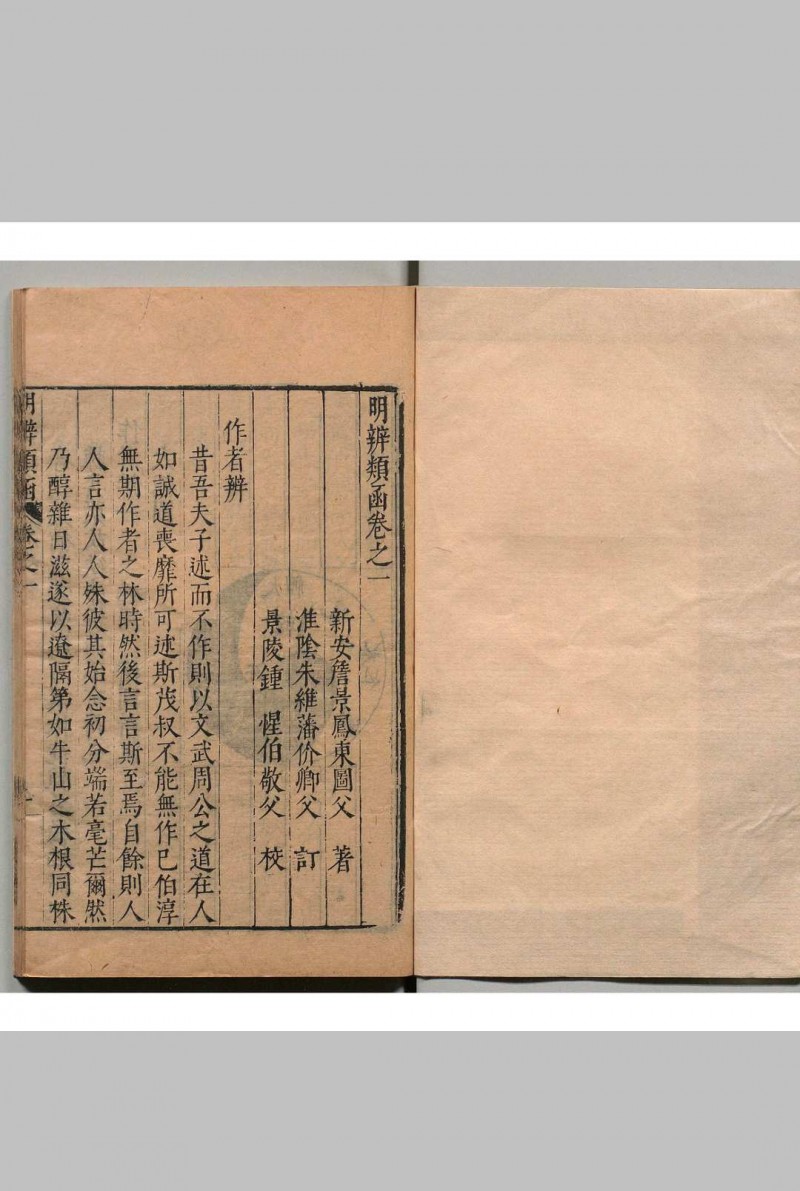 明辨類函卷之一
新安詹景鳳東圖父 著
淮陰朱維藩价卿父 訂
景陵鍾 惺伯敬父 校
作者辨
昔吾夫子述而不作則以文武周公之道在人
如誠道喪靡所可述斯茂叔不能無作已怕淳
無期作者之林時然後言言斯至焉自餘則人
人言亦人人姝彼其始念初分端若毫芒爾然
乃醇雜日滋遂以遼隔第如牛山之木根同株
明辨類函 卷之一